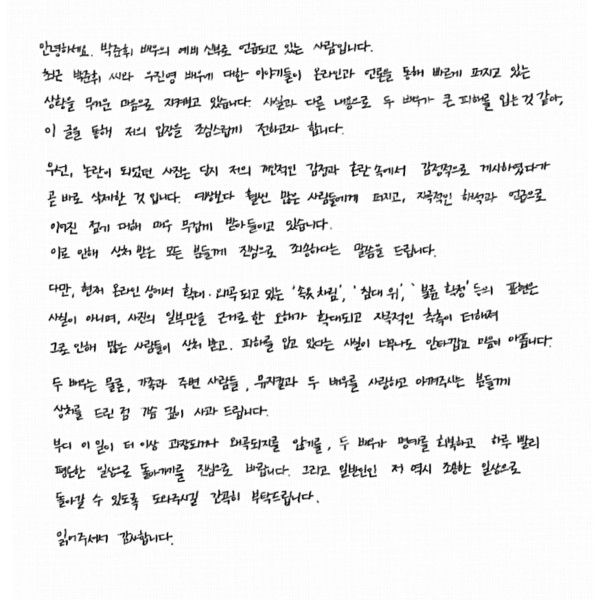 안녕하세요. 박준휘 배우의 예비 신부로 언급되고 있는 사람입니다.
최근 박준휘 씨와 우진영 배우에 대한 이야기들이 온라인과 언론을 통해 빠르게 퍼지고 있는
상황을 무거운 마음으로 지켜보고 있습니다. 사실과 다른 내용으로 두 배우가 큰 피해를 입는 것 같아,
이 글을 통해 저의 입장을 조심스럽게 전하고자 합니다.
우선, 논란이 되었던 사진은 당시 저의 개인적인 감정과 혼란 속에서 감정적으로 게시하였다가
곧 바로 삭제한 것 입니다. 예상보다 훨씬 많은 사람들에게 퍼지고, 자극적인 해석과 언급으로
이어진 점에 대해 매우 무겁게 받아들이고 있습니다.
이로 인해 상처 받은 모든 분들께 진심으로 죄송하다는 말씀을 드립니다.
다만, 현재 온라인 상에서 확대·왜곡되고 있는 '속옷 차림', '침대 위', '불륜 확정' 등의 표현은
사실이 아니며, 사진의 일부만을 근거로 한 오해가 확대되고 자극적인 추측이 더해져
그로 인해 많은 사람들이 상처 받고, 피해를 입고 있다는 사실이 너무나도 안타깝고 마음이 아픕니다.
두 배우는 물론, 가족과 주변 사람들, 뮤지컬과 두 배우를 사랑하고 아껴주시는 분들께
상처를 드린 점 깊이 사과 드립니다.
부디 이 일이 더 이상 과장되거나 왜곡되지를 않기를, 두 배우가 명예를 회복하고 하루 빨리
평온한 일상으로 돌아가기를 진심으로 바랍니다. 그리고 일반인인 저 역시 조용한 일상으로
돌아갈 수 있도록 도와주시길 간곡히 부탁드립니다.
읽어주셔서 감사합니다.